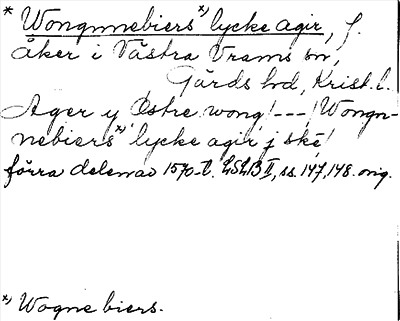 * Wongnnebiers *) lycke agir, f.
åker i Västra Vrams sn,
Gärds hd, Krist. l.
Ager y Østre wong! --- ! Wongn-
nebiers *) lycke agir j ské!
förra delen av 1570-t. LSLB II, ss. 147, 148. orig.
*) Wogne biers.